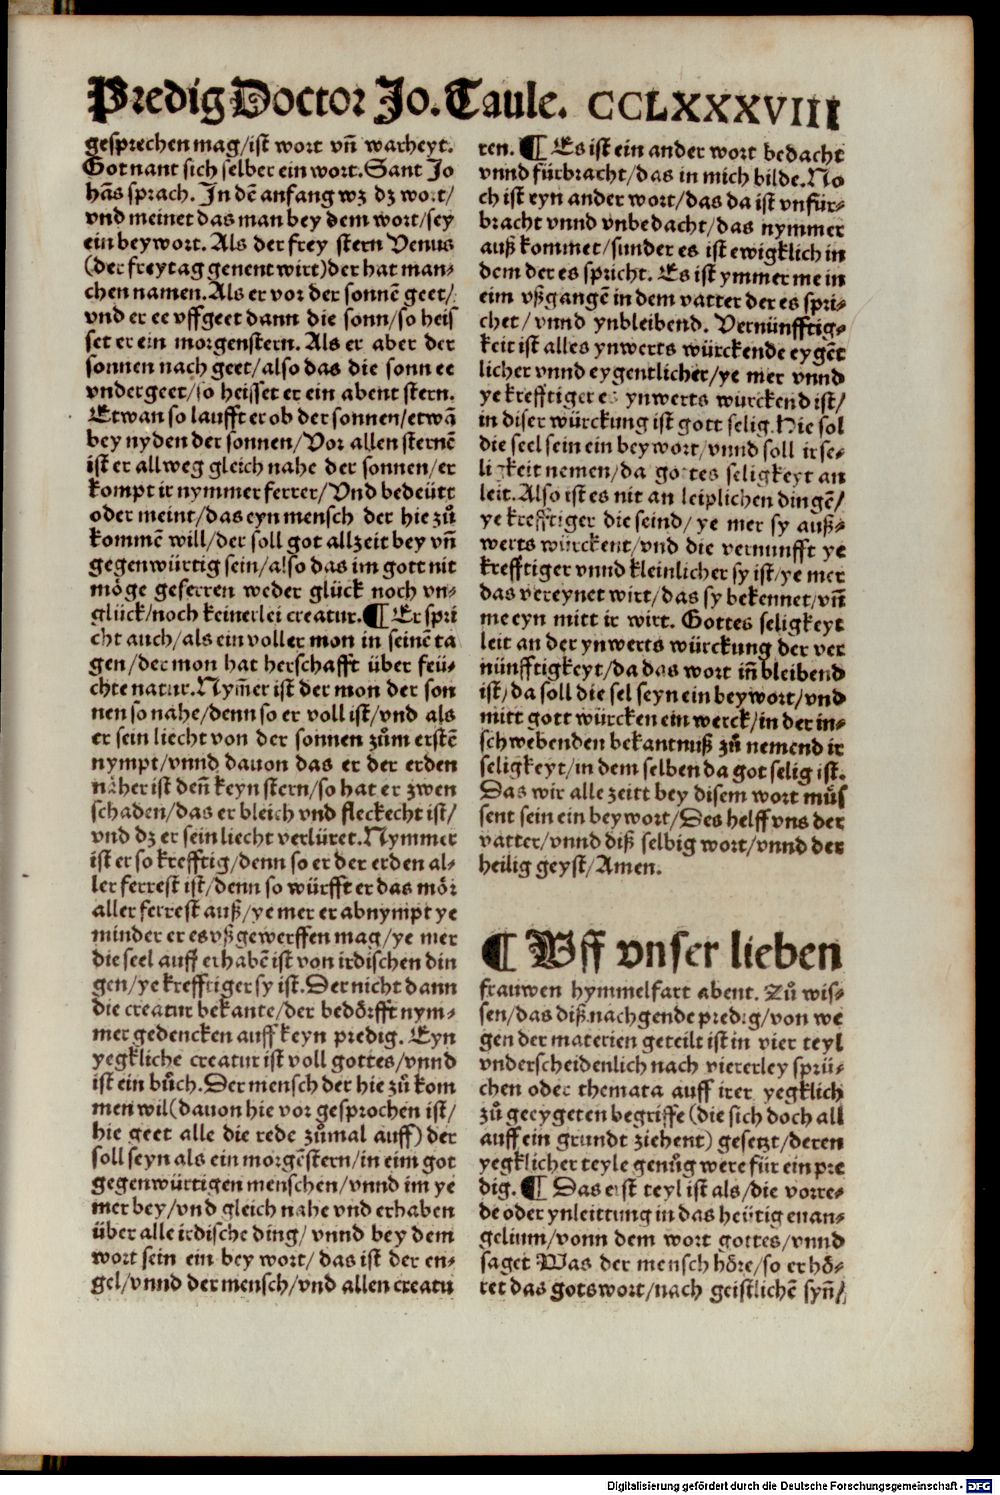 Predig Doctor Jo. Taule. CCLXXXVIII
gesprechen mag/ist wort vñ warheyt.
Got nant sich selber ein wort. Sant Jo
hãs sprach. In dẽ anfang wz dz wort/
vnd meinet das man bey dem wort/sey
ein beywort. Als der frey stern Venus
(der freytag genent wirt)der hat man-
chen namen. Als er vor der sonnẽ geet/
vnd er ee vffgeet dann die sonn/so heis
set er ein morgenstern. Als er aber der
sonnen nach geet/also das die sonn ee
vndergeet/so heisset er ein abent stern.
Etwan so laufft er ob der sonnen/etwã
bey nyden der sonnen/Vor allen sternẽ
ist er allweg gleich nahe der sonnen/er
kompt ir nymmer ferrer/Vnd bedeütt
oder meint/das eyn mensch der hie zů
kommẽ will/der soll got allzeit bey vñ
gegenwürtig sein/also das im gott nit
möge geferren weder glück noch vn-
glück/noch keinerlei creatur. ¶ Er spri
cht auch/als ein voller mon in seinẽ ta
gen/der mon hat herschafft über feü-
chte natur. Nym̃er ist der mon der son
nen so nahe/denn so er voll ist/vnd als
er sein liecht von der sonnen zům erstẽ
nympt/vnnd dauon das er der erden
näher ist deñ keyn stern/so hat er zwen
schaden/das er bleich vnd fleckecht ist/
vnd dz er sein liecht verlüret. Nymmer
ist er so krefftig/denn so er der erden al-
ler ferrest ist/denn so würfft er das mör
aller ferrest auß/ye mer er abnympt ye
minder er es vßgewerffen mag/ye mer
die seel auff erhabẽ ist von irdischen din
gen/ye krefftiger sy ist. Der nicht dann
die creatur bekante/der bedörfft nym-
mer gedencken auff keyn predig. Eyn
yegkliche creatur ist voll gottes/vnnd
ist ein bůch. Der mensch der hie zů kom
men wil(dauon hie vor gesprochen ist/
hie geet alle die rede zůmal auff) der
soll seyn als ein morgẽstern/in eim got
gegenwürtigen menschen/vnnd im ye
mer bey/vnd gleich nahe vnd erhaben
über alle irdische ding/ vnnd bey dem
wort sein ein bey wort/ das ist der en-
gel/vnnd der mensch/vnd allen creatu
ren. ¶ Es ist ein ander wort bedacht
vnnd fürbracht/das in mich bilde. No
ch ist eyn ander wort/das da ist vnfür-
bracht vnnd vnbedacht/das nymmer
auß kommet/sunder es ist ewigklich in
dem der es spricht. Es ist ymmer me in
eim vßgangẽ in dem vatter der es spri-
chet/ vnnd ynbleibend. Vernünfftig-
keit ist alles ynwerts würckende eygẽt
licher vnnd eygentlicher/ye mer vnnd
ye krefftiger es ynwerts würckend ist/
in diser würckung ist gott selig. Hie sol
die seel sein ein beywort/vnnd soll ir se-
ligkeit nemen/da gottes seligkeyt an
leit. Also ist es nit an leiplichen dingẽ/
ye krefftiger die seind/ ye mer sy auß-
werts würckent/vnd die vernunfft ye
krefftiger vnnd kleinlicher sy ist/ye mer
das vereynet wirt/das sy bekennet/vñ
me eyn mitt ir wirt. Gottes seligkeyt
leit an der ynwerts würckung der ver
nünfftigkeyt/da das wort iñbleibend
ist/da soll die sel seyn ein beywort/vnd
mitt gott würcken ein werck/in der in-
schwebenden bekantnuß zů nemend ir
seligkeyt/in dem selben da got selig ist.
Das wir alle zeitt bey disem wort můs
sent sein ein beywort/Des helff vns der
vatter/vnnd diß selbig wort/vnnd der
heilig geyst/Amen.
¶ Vff vnser lieben
frauwen hymmelfart abent. Zů wis-
sen/das diß nachgende predig/von we
gen der materien geteilt ist in vier teyl
vnderscheidenlich nach viererley sprü-
chen oder themata auff irer yegklich
zů geeygeten begriffe (die sich doch all
auff ein grundt ziehent) gesetzt/deren
yegklicher teyle genůg were für ein pre
dig. ¶ Das erst teyl ist als/die vorre-
de oder ynleittung in das heütig euan-
gelium/vonn dem wort gottes/vnnd
saget Was der mensch höre/so er hö-
ret das gotswort/nach geistlichẽ syñ/
Digitalisierung gefördert durch die Deutsche Forschungsgemeinschaft - DFG